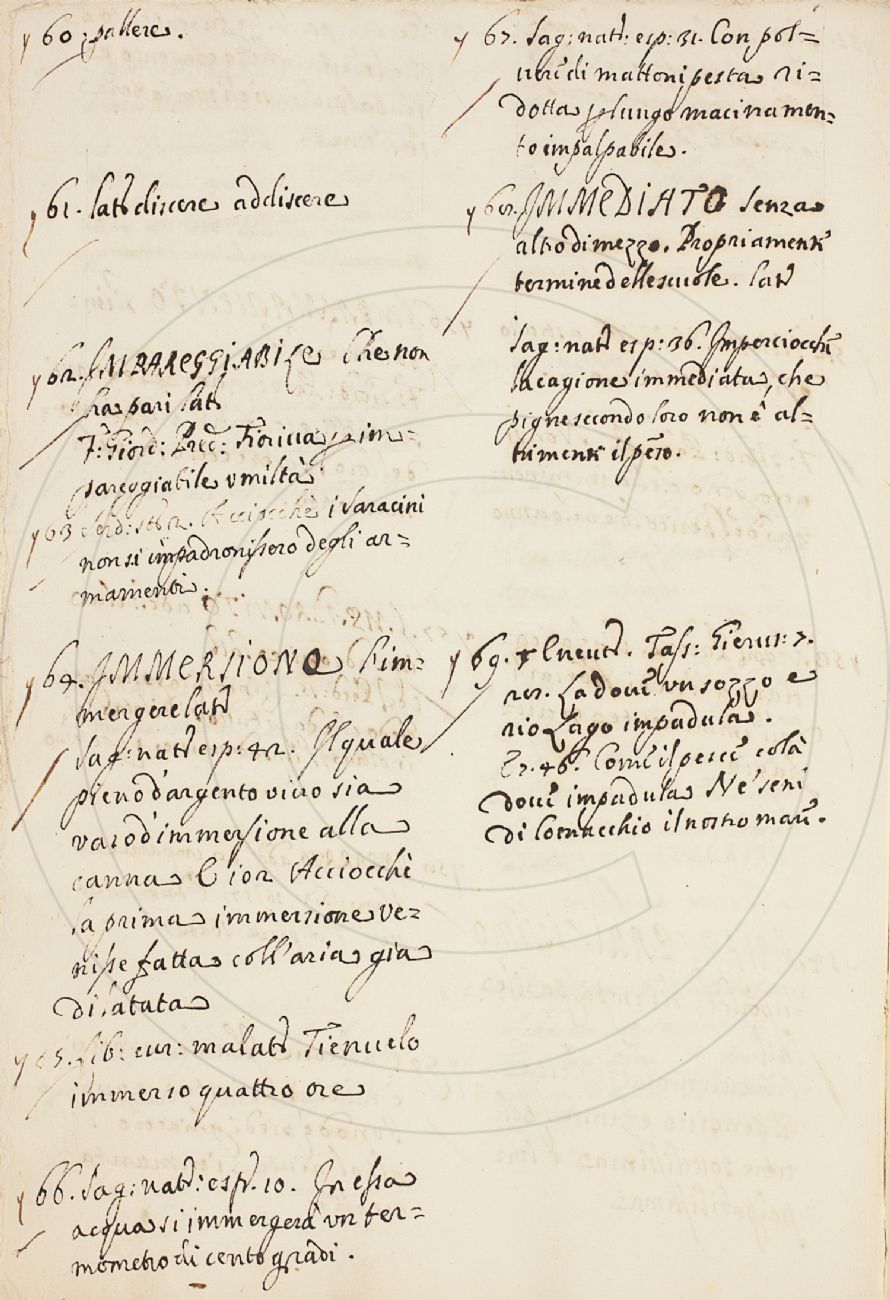 60. pallere.
61. lat. discere addiscere
62. IMPAREGGIABILE Che non
ha pari lat.
F: Giord: Pred: Fioriva per im=
pareggiabile umiltà
63 Serd: st: 2. Acciocchè i Saracini
non si impadronissero degli ar=
mamenti.
64. IMMERSIONE L'im=
mergere lat.
Sag: nat. esp: 42. Il quale
pieno d'argento vivo sia
vaso d'immersione alla
canna E 102 Acciocchè
la prima immersione ve=
nisse fatta coll'aria gia
dilatata
65. Lib: cur: malat. Tienvelo
immerso quattro ore
66. Sag: nat: esp. 10. In essa
acqua si immergerà un ter=
mometro di cento gradi.
67. Sag: nat: esp: 31. Con pol=
vere di mattoni pesta ri=
dotta p lungo macinamen=
to impalpabile.
68. IMMEDIATO Senza
altro di mezzo. Propriamente
termine delle scuole. lat.
Sag: nat. esp: 36. Imperciocchè
la cagione immediata, che
pigne secondo loro non è al=
trimenti il peso.
69. neut. Tass: Gierus: 7.
Là dove un sozzo e
rio Lago impadula.
E 7. 46. Come il pesce colà
dove impadula Ne' seni
di Comacchio il nostro mare.